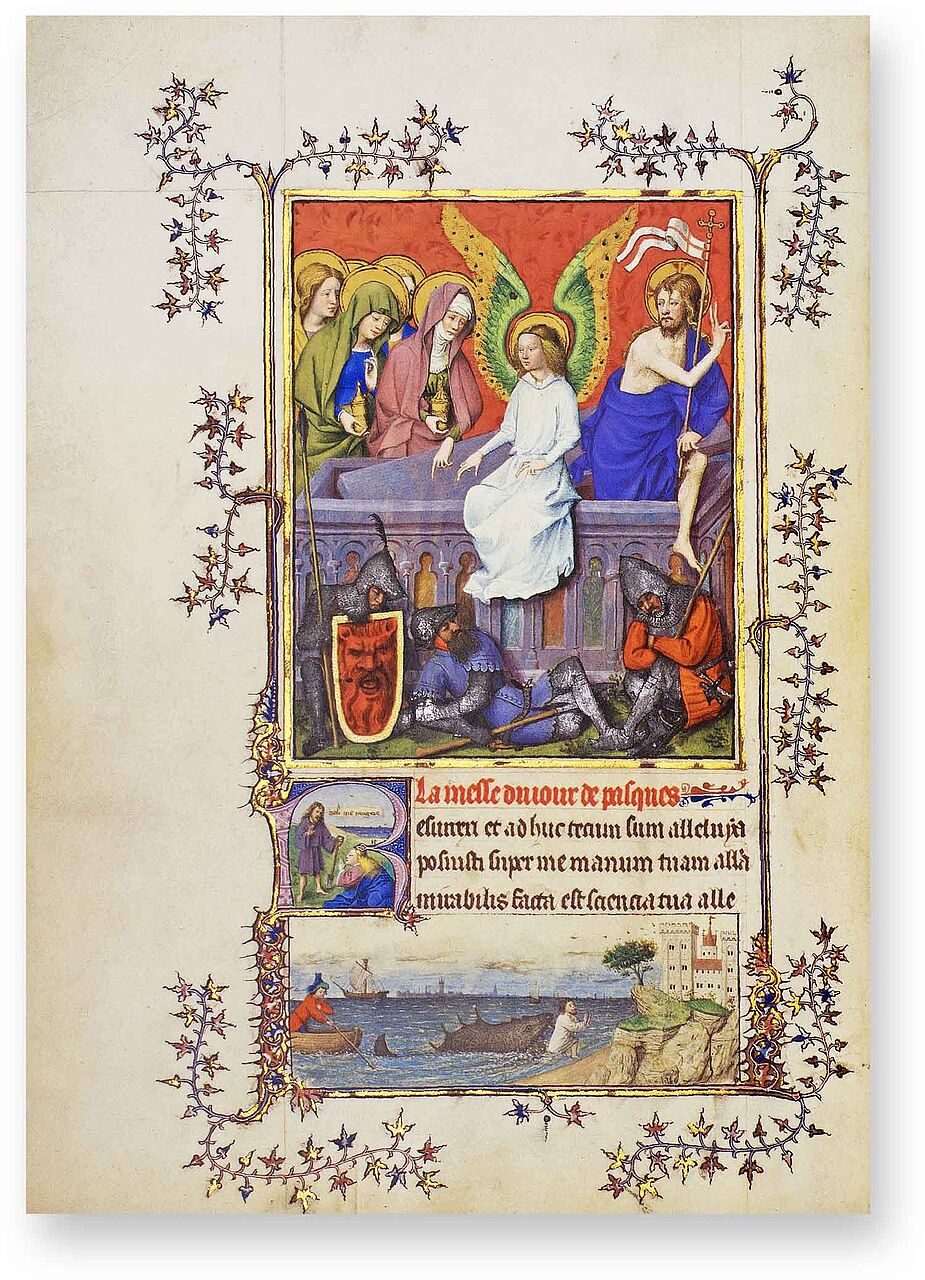 La messe du iour de pasques
noli me tangere
Resurrexi et ad huc tecum sum alleluya
posuisti super me manum tuam alla
mirabilis facta est sciencia tua alle